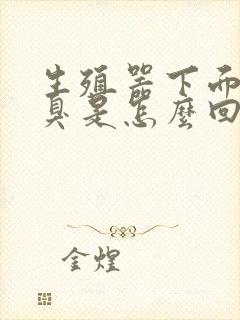 生殖器下面
臭是怎麼回
金煌